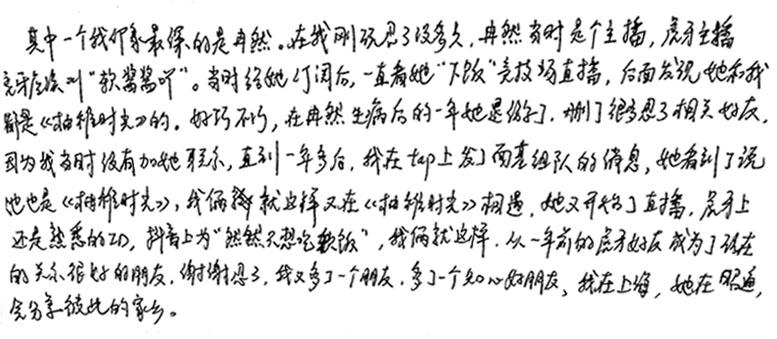 其中一个我印象最深的是冉然。在我刚玩忍3没多久,冉然当时是个主播,虎牙主播
虎牙应该叫“软酱酱吖”。当时给她订阅后,一直看她“下饭”竞技场直播,后面发现她和我
都是《柚稚时光》的。好巧不巧,在冉然生病后的一年她退游了,删了很多忍3相关好友,
因为我当时没有加她联系,直到一年多后,我在tap上发了面基组队的消息,她看到了说
她也是《柚稚时光》,我俩就这样又在《柚稚时光》相遇,她又开始了直播,虎牙上
还是熟悉的ID,抖音上为“然然只想吃软饭”,我俩就这样.从一年前的虎牙好友成为了现在
的关系很好的朋友,谢谢忍3,我又多了一个朋友,多了一个知心好朋友、我在上海,她在昭通,
会分享彼此的家乡。